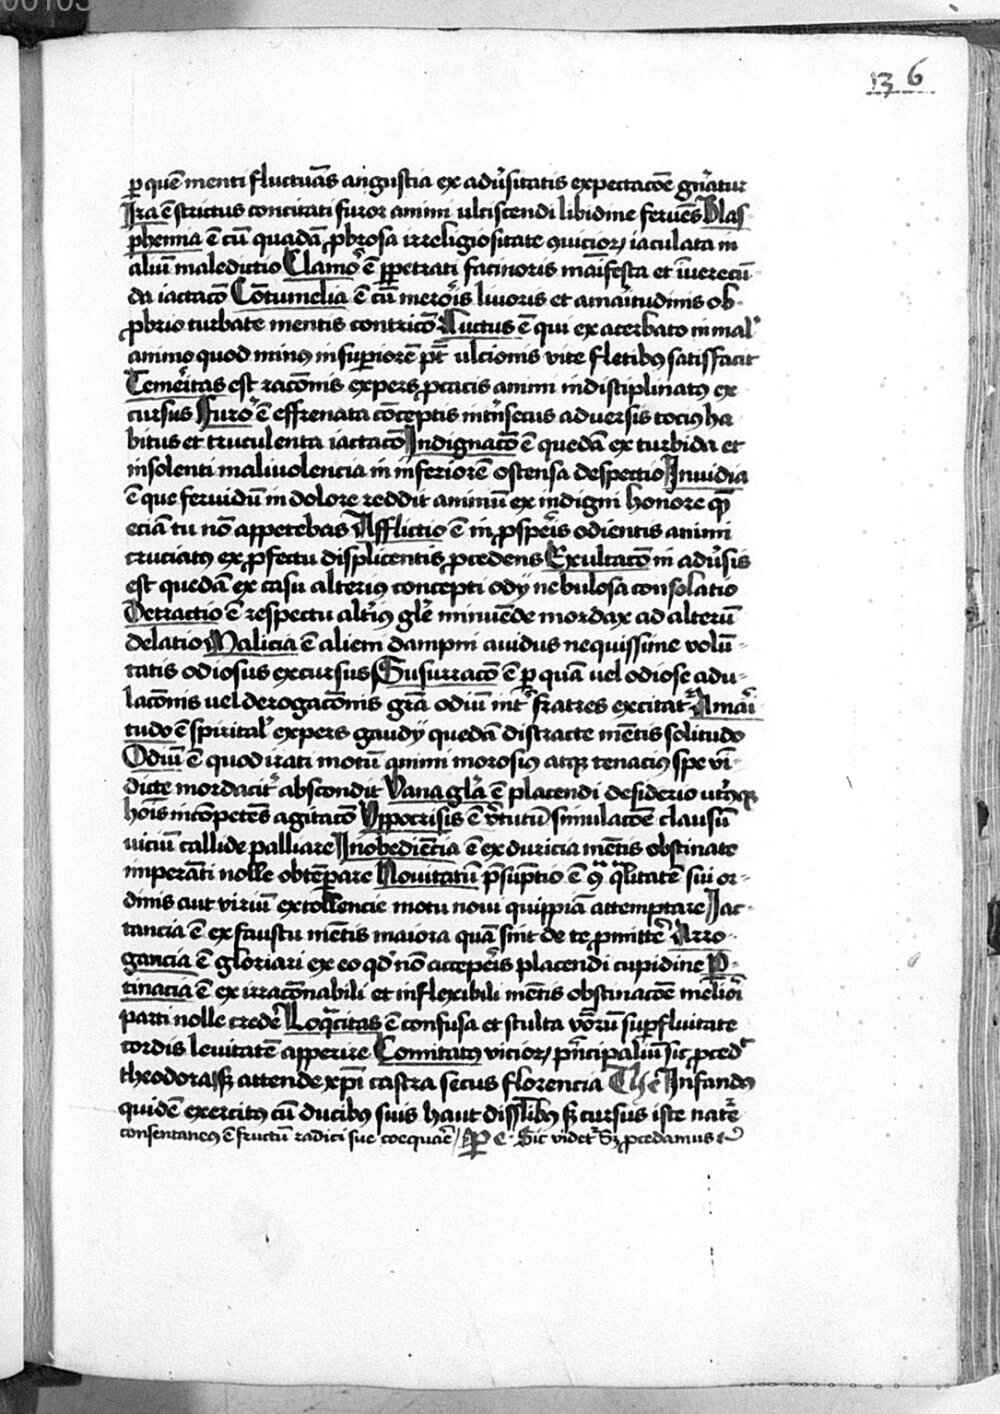 00103
136
ꝑ quē menti fluctuās angustia ex adūsitatis expectacōe gn̄atur
Ira ē strictus concitati furor animi ulciscendi libidine feruēs Blas
phemia ē cū quadā ꝓbrosa irreligiositate ꝯuicioꝝ iaculata in
aliū maledictio Clamor ē ꝑpetrati facinoris māifesta et īuerecū
da iactacō Cōtumelia ē cū meroris liuoris et amaritudinis ob
ꝓbrio turbate mentis contricō Luctus ē qui exacerbato in mal
animo quod minus in suꝑiorē pt̄ ulcionis vite fletibus satisfacit
Temeritas est racōnis expers ꝓcacis animi indisciplinatus ex
cursus Furor ē effrenata cōceptis intn̄secus adversis tocius ha
bitus et truculenta iactacō Indignacō ē quedā ex turbida et
insolenti malivolencia in inferiorē ostensa despectio Inuidia
ē que feruidū in dolore reddit animū ex indigni honore qm̄
eciā tu nō appetebas Afflictio ē in ꝓsperis odientis animi
cruciatus ex ꝓfectu displicentis ꝓcedens Exultacō in adūsis
est quedā ex casu alterius concepti odij nebulosa consolatio
Detractio ē respectu altius gle minuēde mordax ad alterū
delatio Malicia ē alieni dampni auidus nequissime volū
tatis odiosus excursus Susurracō ē ꝑ quā vel odiose adu
lacōnis vel derogacōnis grā odiū int fratres excitat Amari
tudo ē spirital expers gaudij quedā distracte mētis solitudo
Odiū ē quod irati motū animi morosius atqꝫ tenacius spe vī
dicte mordacit abscondit Vana gla ē placendi desiderio utriusqꝫ
hoīs incōpetēs agitacō Ypocrisis ē v̄tutū simulacōe clausū
viciū callide palliare Inobediēcia ē ex duricia mētis obstinate
imperāti nolle obtēperare Nouitatū p̄sūptio ē ꝯ qlitatē sui or
dinis aut viriū extollencie motu noui quippiā attemptare Jac
tancia ē ex faustu mētis maiora quā sint de te ꝓmitte Arro
gancia ē gloriari ex eo qd nō acceperis placendi cupidine P
tinacia ē ex irracōnabili et inflexibili mētis obstinacōe meliori
parti nolle crede Loqcitas ē confusa et stulta vborū suꝑfluitate
cordis levitatē apperire Comitatus vicioꝝ pn̄cipaliū sic ꝓced
theodora sꝫ attende xp̄i castra secus florencia The Infandus
quidē exercitus cū ducibus suis haut dissilibus sꝫ cursus iste nate
consentaneus ē fructū radici sue coequare Pe Sic videt Sꝫ ꝓcedamus